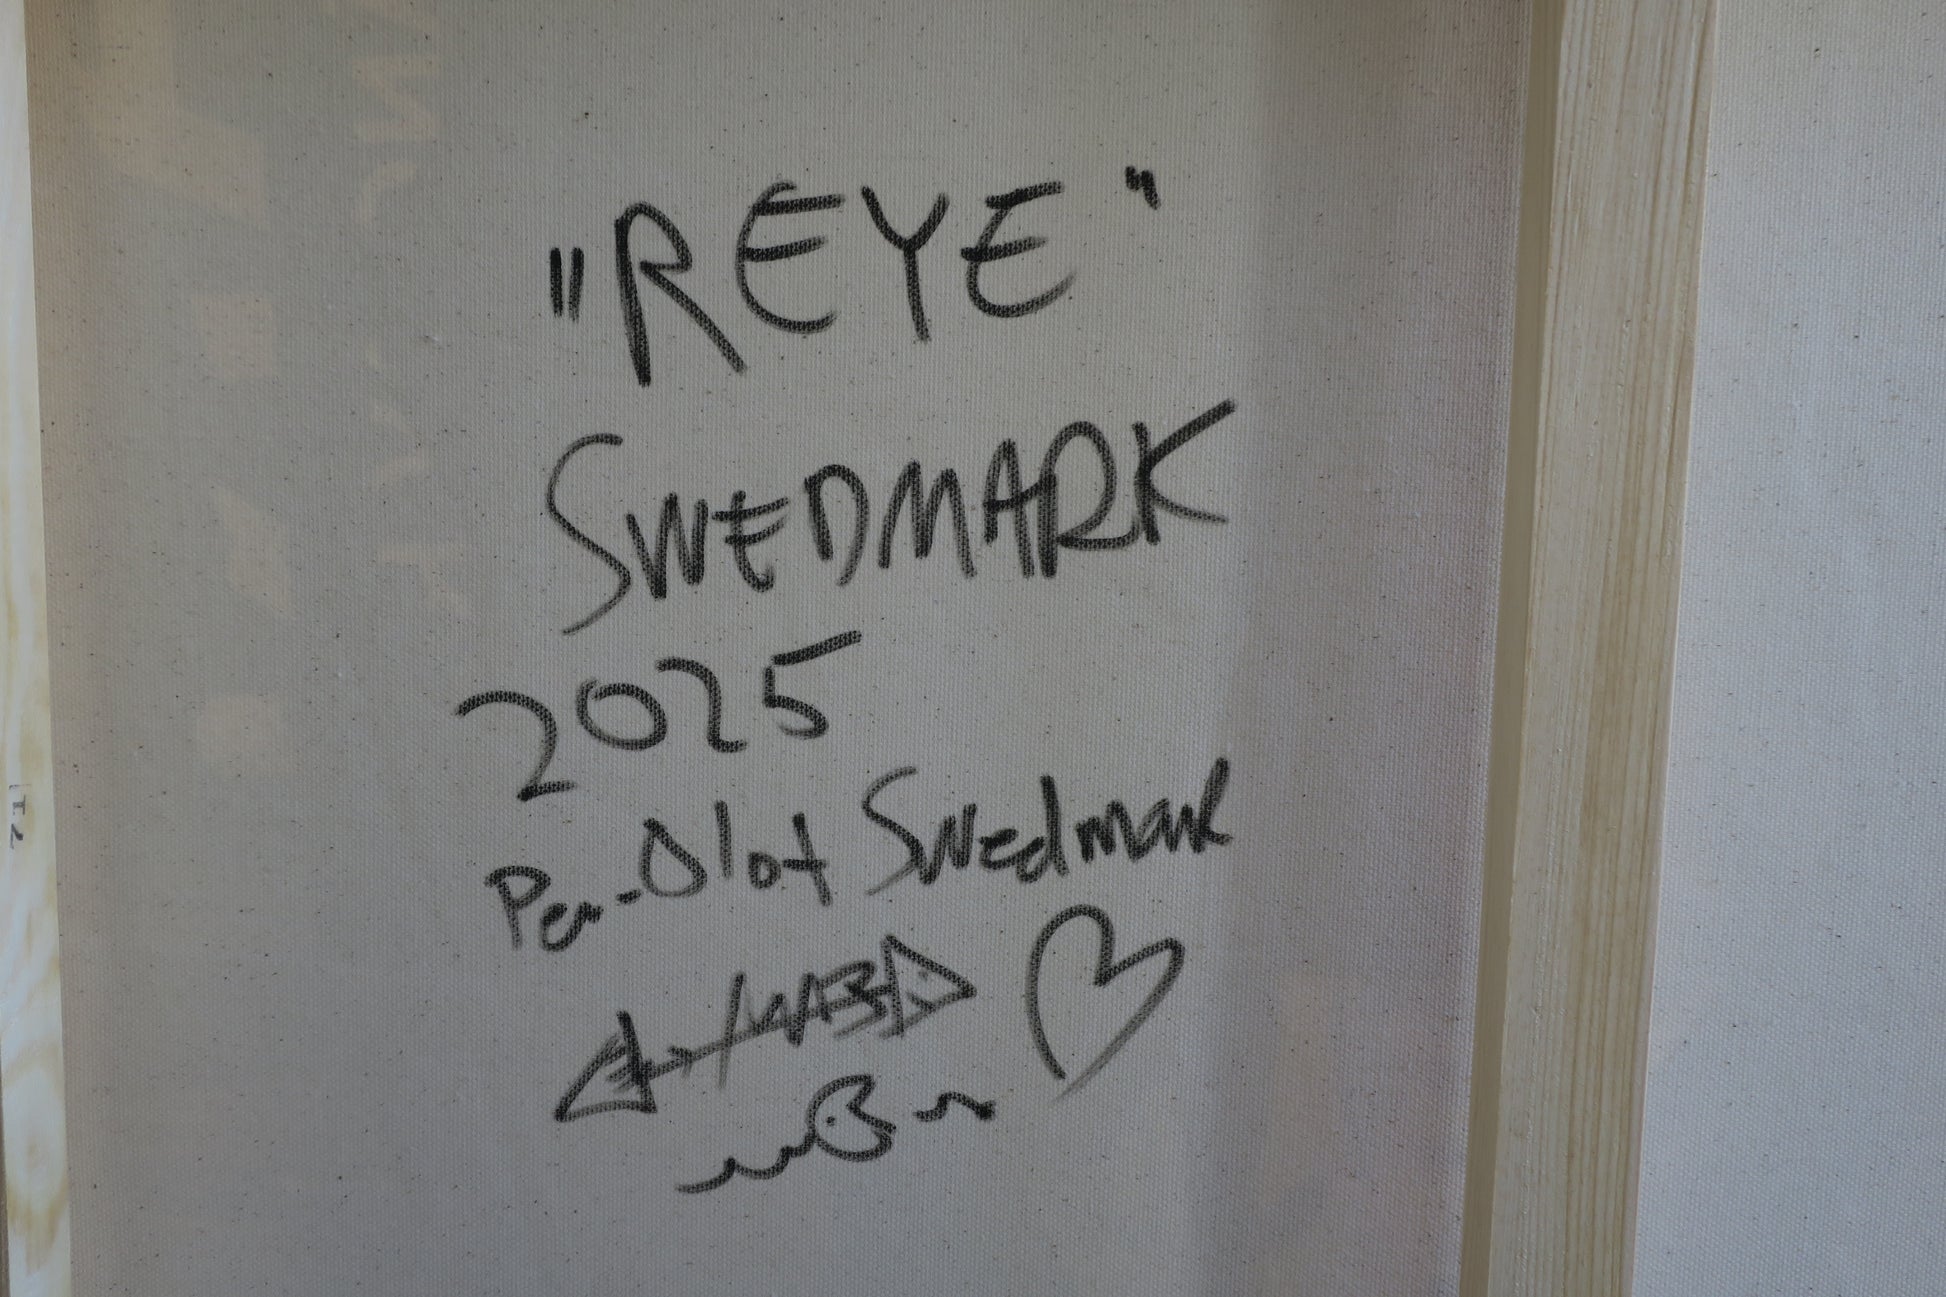 "REYE"
SWEDMARK
2025
Per-Olof Swedmark